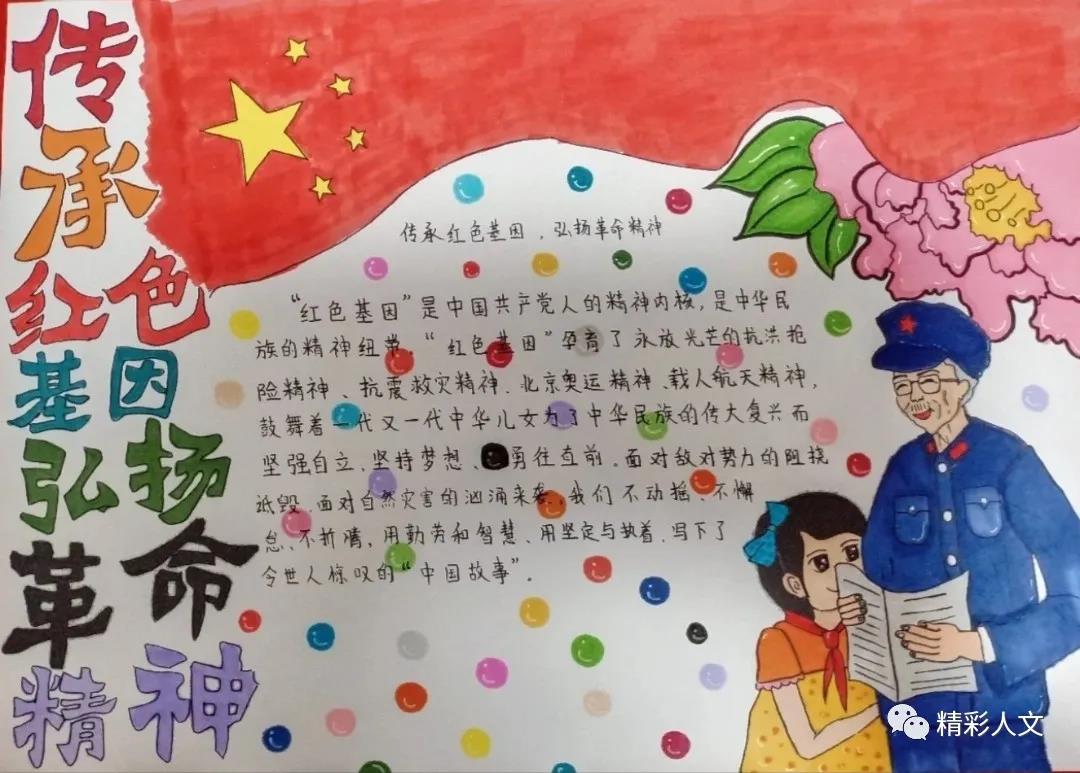 传承红色基因
弘扬革命精神
传承红色基因，弘扬革命精神
“红色基因”是中国共产党人的精神内核，是中华民
族的精神纽带。“红色基因”孕育了永放光芒的抗洪抢
险精神、抗震救灾精神、北京奥运精神、载人航天精神，
鼓舞着一代又一代中华儿女为了中华民族的伟大复兴而
坚强自立、坚持梦想、勇往直前。面对敌对势力的阻挠
诋毁，面对自然灾害的汹涌来袭，我们不动摇、不懈
怠、不折腾，用勤劳和智慧、用坚定与执着，写下了
令世人惊叹的“中国故事”。
精彩人文